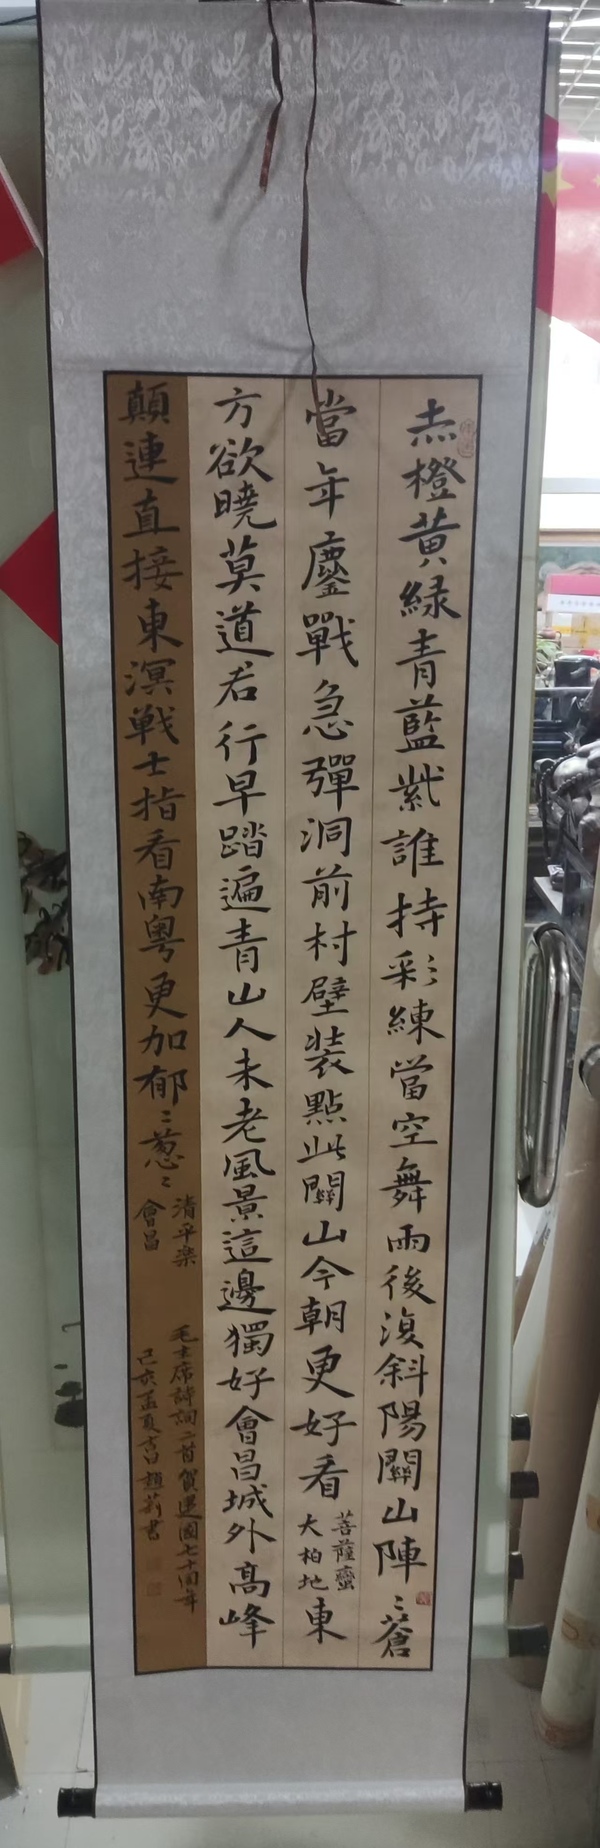 赤橙黄緑青藍紫誰持彩練當空舞雨後復斜陽關山陣〻蒼
當年鏖戰急彈洞前村壁装點此關山今朝更好看
菩薩蠻
大柏地
東
方欲曉莫道君行早踏遍青山人未老風景這邊獨好會昌城外高峰
顛連直接東溟戦士指看南粤更加郁〻葱〻
清平楽
會昌
毛主席詩詞二首賀建國七十周年
己亥孟夏
書